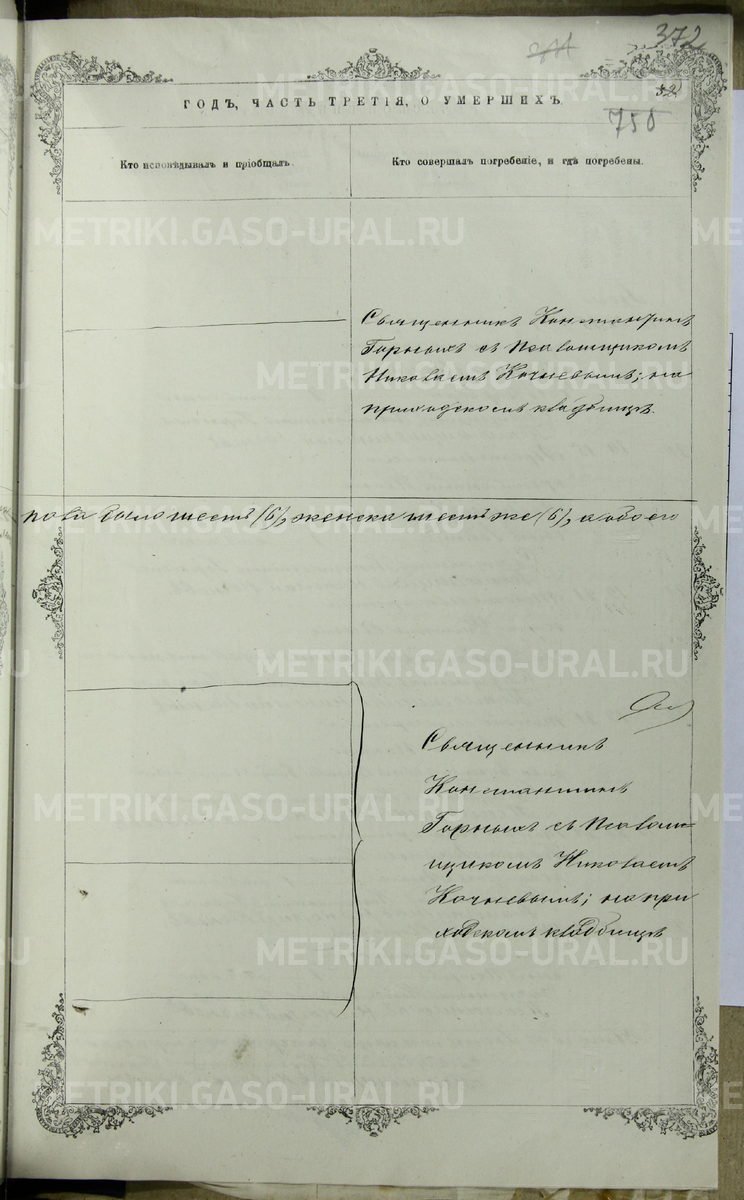 372
52
750
ГОДЪ, ЧАСТЬ ТРЕТІЯ, О УМЕРШИХЪ.
Кто исповѣдывалъ и пріобщалъ.
Кто совершалъ погребеніе, и гдѣ погребены.
Священникъ Константинъ
Горныхъ съ Псаломщикомъ
Николаемъ Кочневымъ; на
приходскомъ кладбищѣ.
пола было шесть (6), женска шесть же (6), а обоего
Священникъ
Константинъ
Горныхъ съ Псалом-
щикомъ Николаемъ
Кочневымъ; на при
ходскомъ кладбищѣ
METRIKI.GASO-URAL.RU